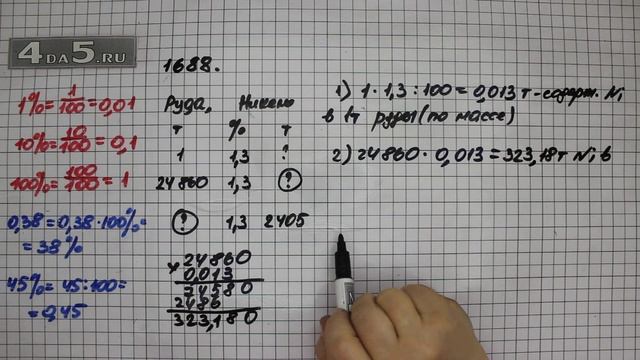 4DA5.RU
1688.
1%=1/100=0,01
10%=10/100=0,1
100%=100/100=1
0,38=0,38·100%=
=38%
45%=45:100=
=0,45
Руда, Никель
т % т
1 1,3 ?
24860 1,3 ?
? 1,3 2405
24860
× 0,013
74580
2486
323,180
1) 1·1,3:100=0,013т-содерж. Ni
в 1т руды(по массе)
2) 24860·0,013=323,18т Ni в